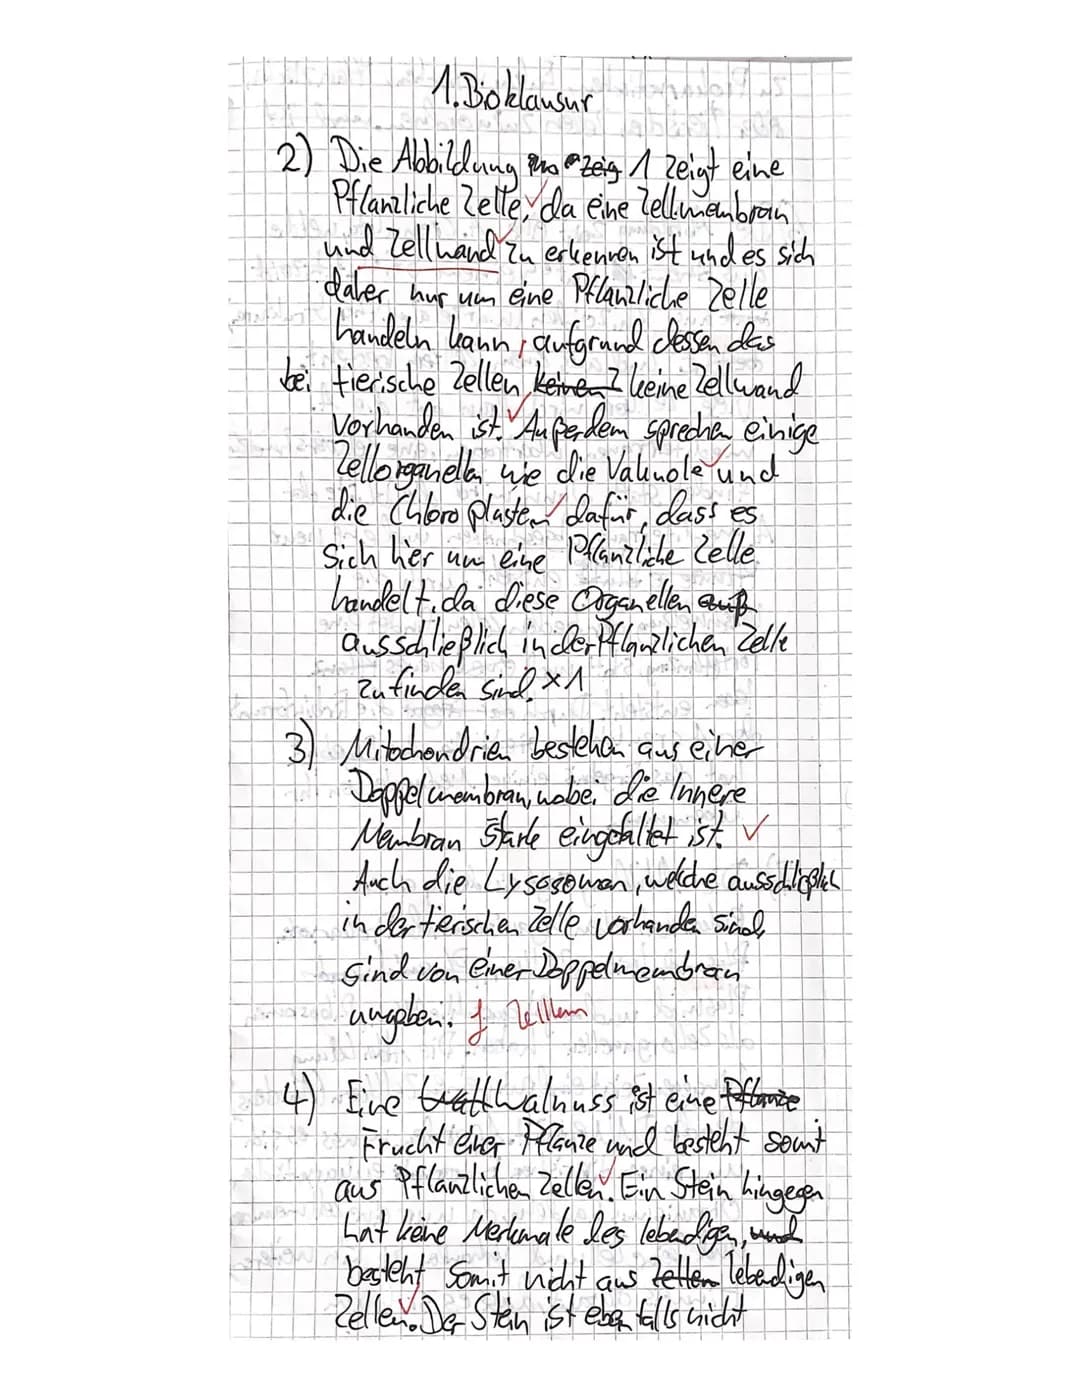 1. Bioklausur
2) Die Abbildung zeig 1 zeigt eine
Pflanzliche Zelle, da eine Zellmembran
und Zellwand zu erkennen ist und es sich
daher nur um eine Pflanzliche Zelle
handeln kann, aufgrund dessen das
bei tierische Zellen keinen Z keine Zellwand
vorhanden ist. Außerdem sprechen einige
Zellorganellen wie die Vakuole und
die Chloroplasten dafür, dass es
sich hier um eine Pflanzliche Zelle
handelt, da diese Organellen auß
ausschließlich in der Pflanzlichen Zelle
zu finden sind. x1
3) Mitochondrien bestehen aus einer
Doppelmembran, wobei die Innere
Membran Stark eingefaltet ist.
Auch die Lysosomen, welche ausschließlich
in der tierischen Zelle vorhanden sind,
sind von einer Doppelmembran
umgeben. f
4) Eine Walnuss ist eine Pflanze
Frucht einer Pflanze und besteht somit
aus Pflanzlichen Zellen. Ein Stein hingegen
hat keine Merkmale des lebendigen, und
besteht somit nicht aus Zellen lebendigen
Zellen. Der Stein ist ebenfalls nicht